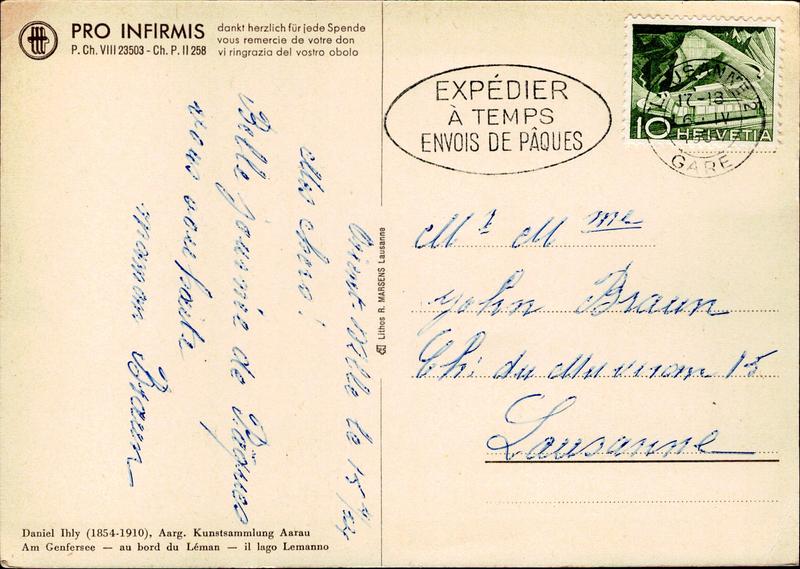 PRO INFIRMIS
P. Ch. VIII 23503 - Ch. P. II 258
dankt herzlich für jede Spende
vous remercie de votre don
vi ringrazia del vostro obolo
EXPÉDIER
À TEMPS
ENVOIS DE PÂQUES
LAUSANNE 2
17-18
GARE
10 HELVETIA
le 15
Mes chers!
Belle journée de Pâques
vous souhaite
maman Braun
Lithos R. MARSENS Lausanne
Mr Mme
John Braun
Ch: du Muveran 15
Lausanne
Daniel Ihly (1854-1910), Aarg. Kunstsammlung Aarau
Am Genfersee — au bord du Léman — il lago Lemanno